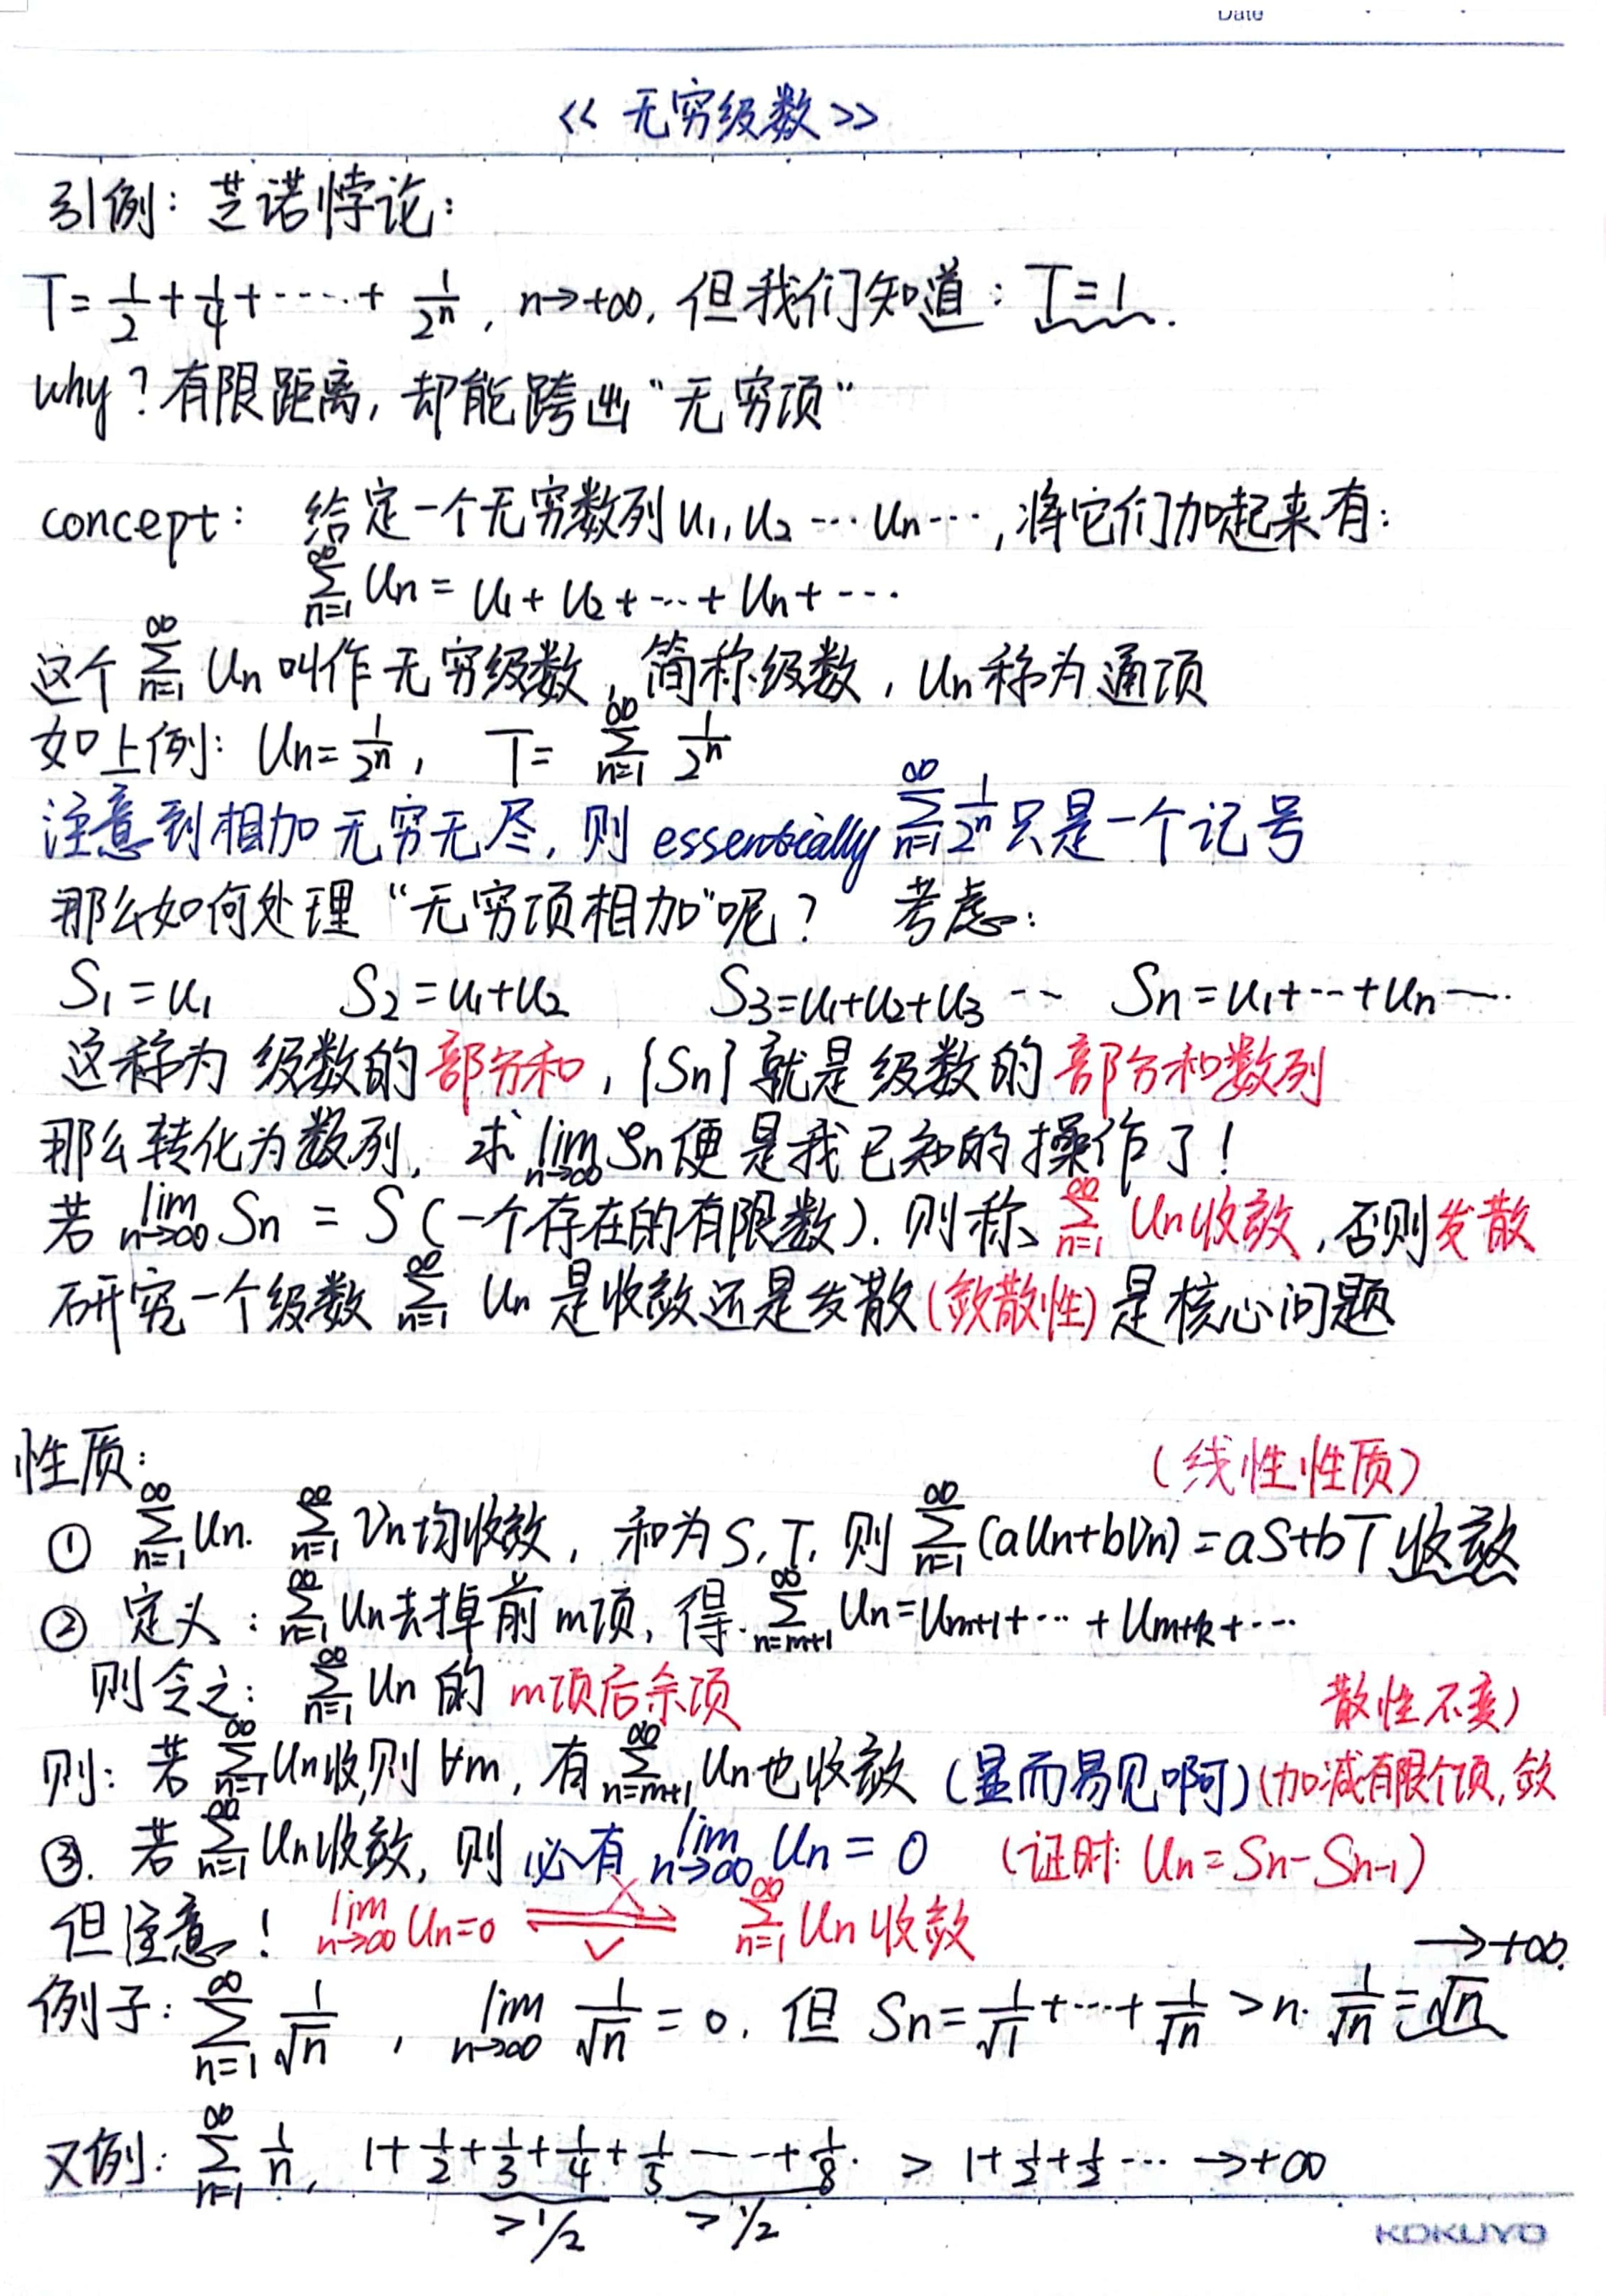 Date
《无穷级数》
引例：芝诺悖论：
T = 1/2 + 1/4 + ····· + 1/2ⁿ , n→+∞, 但我们知道：T=1.
why？有限距离，却能跨出“无穷项”
concept： 给定一个无穷数列 u₁, u₂ ··· uₙ ···，将它们加起来有：
∑_{n=1}^{∞} uₙ = u₁ + u₂ + ··· + uₙ + ···
这个 ∑_{n=1}^{∞} uₙ 叫作无穷级数，简称级数，uₙ 称为通项
如上例：uₙ = 1/2ⁿ， T = ∑_{n=1}^{∞} 1/2ⁿ
注意到相加无穷无尽，则 essentially ∑_{n=1}^{∞} 1/2ⁿ 只是一个记号
那么如何处理“无穷项相加”呢？ 考虑：
S₁ = u₁ S₂ = u₁+u₂ S₃ = u₁+u₂+u₃ ··· Sₙ = u₁+···+uₙ ···.
这称为 级数的部分和，{Sₙ} 就是级数的部分和数列
那么转化为数列，求 lim_{n→∞} Sₙ 便是我已知的操作了！
若 lim_{n→∞} Sₙ = S（一个存在的有限数）. 则称 ∑_{n=1}^{∞} uₙ 收敛，否则发散
研究一个级数 ∑_{n=1}^{∞} uₙ 是收敛还是发散（敛散性）是核心问题
性质： （线性性质）
① ∑_{n=1}^{∞} uₙ. ∑_{n=1}^{∞} vₙ 均收敛，和为 S, T, 则 ∑_{n=1}^{∞} (auₙ+bvₙ) = aS+bT 收敛
② 定义：∑_{n=1}^{∞} uₙ 去掉前 m 项，得 ∑_{n=m+1}^{∞} uₙ = u_{m+1} + ··· + u_{m+k} + ···
则令之：∑_{n=1}^{∞} uₙ 的 m项后余项
则：若 ∑_{n=1}^{∞} uₙ 收，则 ∀m, 有 ∑_{n=m+1}^{∞} uₙ 也收敛（显而易见啊）（加减有限个项，敛
散性不变）
③. 若 ∑_{n=1}^{∞} uₙ 收敛，则 必有 lim_{n→∞} uₙ = 0 （证时：uₙ = Sₙ - Sₙ₋₁）
但注意！ lim_{n→∞} uₙ = 0 ⇌ × ✓ ∑_{n=1}^{∞} uₙ 收敛
例子：∑_{n=1}^{∞} 1/√n , lim_{n→∞} 1/√n = 0. 但 Sₙ = 1/√1 + ··· + 1/√n > n· 1/√n = √n →+∞.
又例：∑_{n=1}^{∞} 1/n, 1 + 1/2 + 1/3 + 1/4 + 1/5 ···· + 1/8 · > 1 + 1/2 + 1/2 ··· → +∞
>1/2 >1/2
KOKUYO